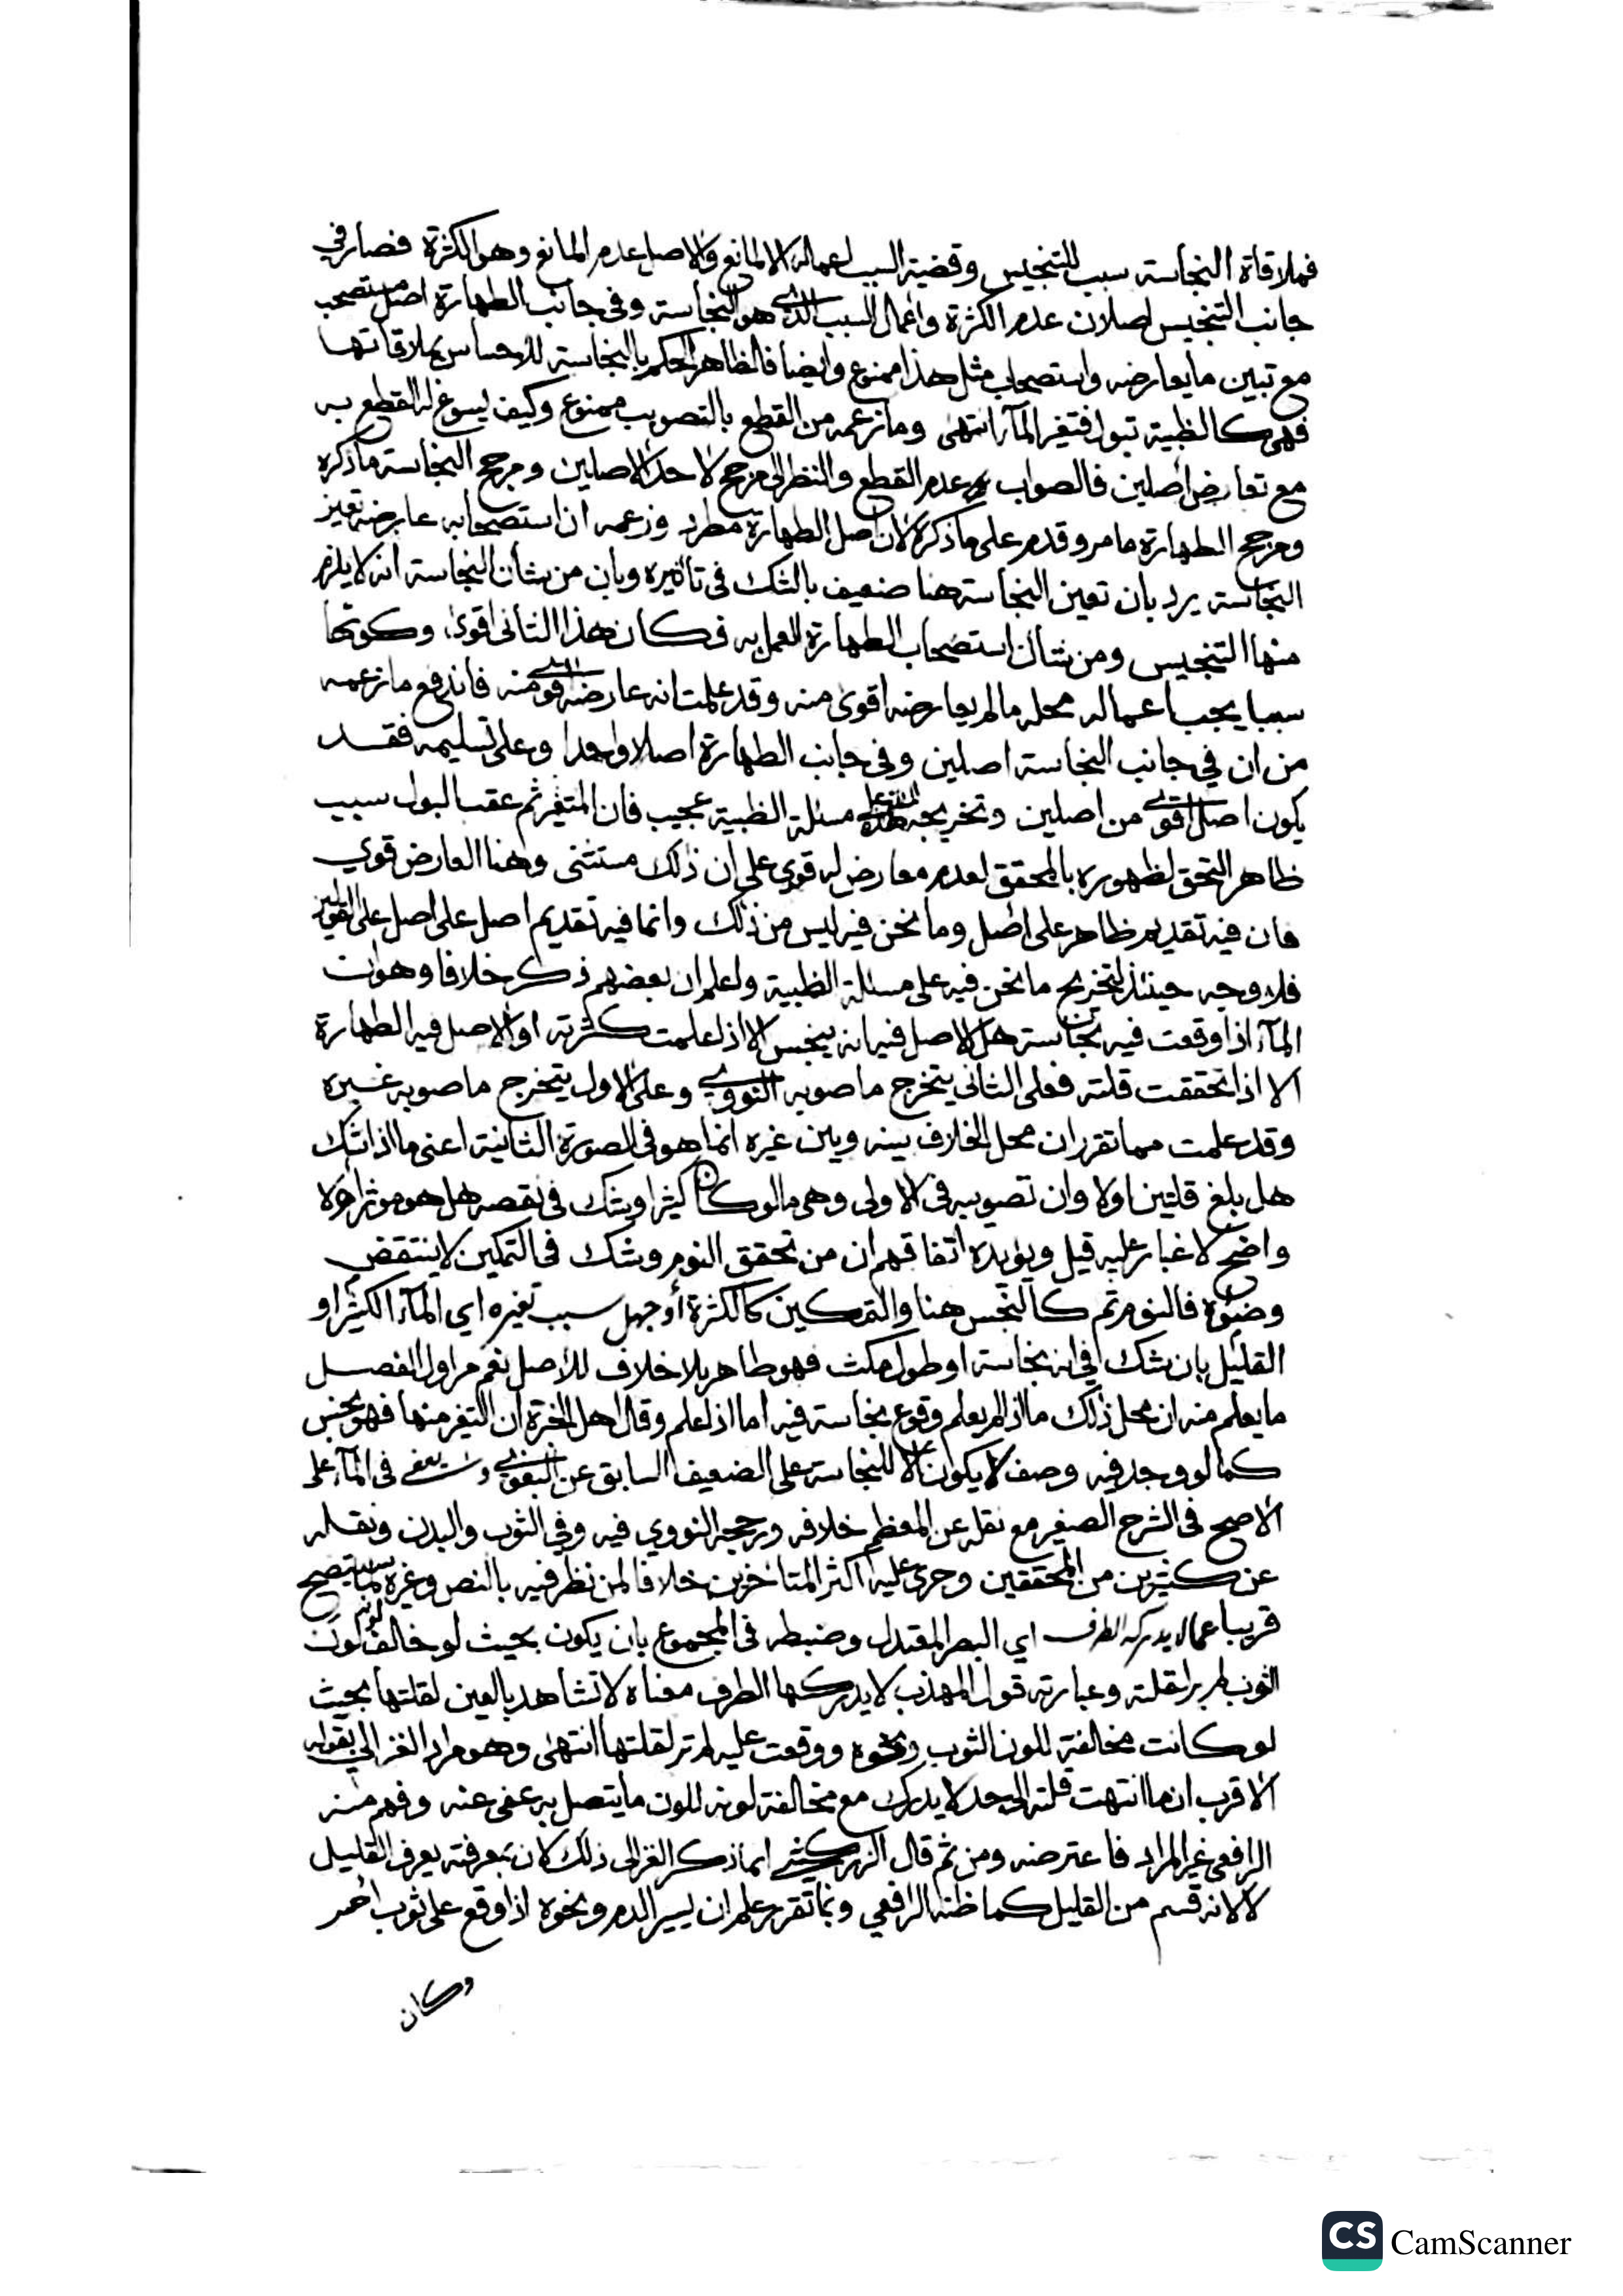 فملاقاة النجاسة سبب للتنجيس وقضية السبب اعماله الا لمانع والاصل عدم المانع وهو الكثرة فصار في
جانب التنجيس اصلان عدم الكثرة واعمال السبب الذي هو النجاسة وفي جانب الطهارة اصل مستصحب
مع تبين ما يعارضه واستصحاب مثل هذا ممنوع وايضا فالظاهر الحكم بالنجاسة للاحساس بملاقاتها
فهي كالظبية تبول فتغير المآء انتهى وما زعمه من القطع بالتصويب ممنوع وكيف يسوغ له القطع به
مع تعارض اصلين فالصواب عدم القطع والنظر الى مرجح لاحد الاصلين ومرجح النجاسة ما ذكره
ومرجح الطهارة ما مر وقدم على ما ذكره لان اصل الطهارة مطرد وزعمه ان استصحابه عارضه تعين
النجاسة يرد بان تعين النجاسة هنا ضعيف بالشك في تاثيره وبان من شان النجاسة انه لا يلزم
منها التنجيس ومن شان استصحاب الطهارة العمل به فكان هذا الثاني اقوى وكونها
سببا يجب اعماله محله ما لم يعارضه اقوى منه وقد علمت انه عارضه اقوى منه فاندفع ما زعمه
من ان في جانب النجاسة اصلين وفي جانب الطهارة اصلا واحدا وعلى تسليمه فقد
يكون اصل اقوى من اصلين وتخريجه مسئلة الظبية عجيب فان المتغير ثم عقب البول سبب
ظاهر التحق لظهوره بالمحقق لعدم معارض له قوي على ان ذلك مستثنى وهنا العارض قوي
فان فيه تقديم ظاهر على اصل وما نحن فيه ليس من ذلك وانما فيه تقديم اصل على اصل على القولين
فلا وجه حينئذ لتخريج ما نحن فيه على مسئلة الظبية واعلم ان بعضهم ذكر خلافا وهو ان
المآء اذا وقعت فيه نجاسة هل الاصل فيه انه ينجس الا اذا علمت كثرته او الاصل فيه الطهارة
الا اذا تحققت قلته فعلى الثاني يتخرج ما صوبه النووي وعلى الاول يتخرج ما صوبه غيره
وقد علمت مما تقرر ان محل الخلاف بينه وبين غيره انما هو في الصورة الثانية اعني ما اذا شك
هل بلغ قلتين اولا وان تصويبه في الاولى وهي ما لو كان كثيرا وشك في نقصه هل هو موثر او لا
واضح لا غبار عليه قيل ويؤيده اتفاقهم ان من تحقق النوم وشك في التمكين لا ينتقض
وضوءه فالنوم ثم كالنجس هنا والتمكين كالكثرة أو جهل سبب تغيره اي المآء الكثير او
القليل بان شك في انه نجاسة او طول مكث فهو طاهر بلا خلاف للاصل نعم مر اول الفصل
ما يعلم منه ان محل ذلك ما اذا لم يعلم وقوع نجاسة فيه اما اذا علم وقال اهل الخبرة ان التغير منها فهو نجس
كما لو وجد فيه وصف لا يكون الا للنجاسة على الضعيف السابق عن البغوي ويعفى في المآء على
الاصح في الشرح الصغير مع نقله عن المعظم خلافه ورجحه النووي فيه وفي الثوب والبدن ونقله
عن كثيرين من المحققين وجرى عليه اكثر المتاخرين خلافا لمن نظر فيه بالنص وغيره لما سيتضح
قريبا عما لا يدركه الطرف اي البصر المعتدل وضبطه في المجموع بان يكون بحيث لو خالف لونه لون
الثوب لم ير لقلته وعبارته قول المهذب لا يدركها الطرف معناه لا تشاهد بالعين لقلتها بحيث
لو كانت مخالفة للون الثوب ونحوه ووقعت عليه لم تر لقلتها انتهى وهو مراد الغزالي بقوله
الاقرب ان ما انتهت قلته الى حد لا يدرك مع مخالفة لونه للون ما يتصل به عفي عنه وفهم منه
الرافعي غير المراد فاعترضه ومن ثم قال الزركشي انما ذكر الغزالي ذلك لان بمعرفته يعرف القليل
لا لانه قسم من القليل كما ظنه الرافعي وبما تقرر علم ان يسير الدم ونحوه اذا وقع على ثوب احمر
وكان
CS CamScanner